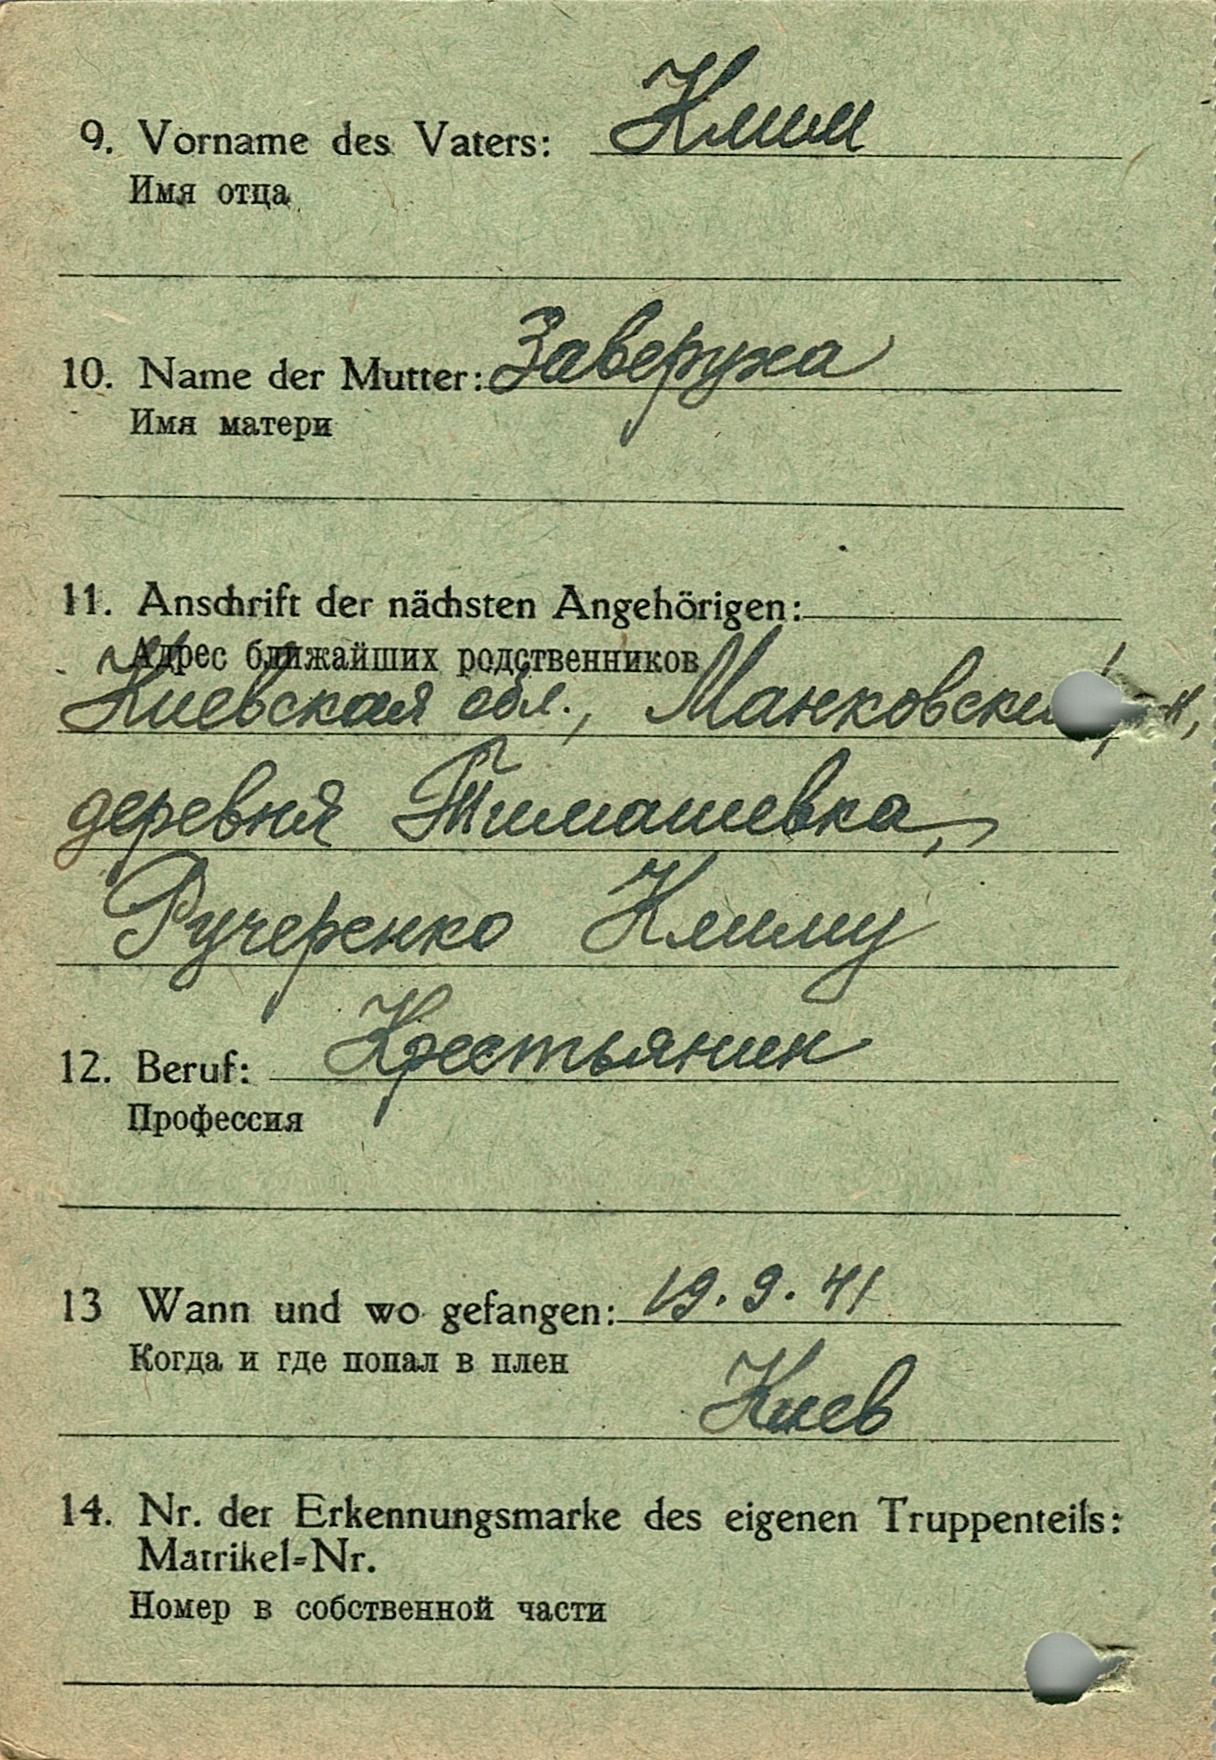 9. Vorname des Vaters: Клим
Имя отца
10. Name der Mutter: Заверуха
Имя матери
11. Anschrift der nächsten Angehörigen:
Адрес ближайших родственников
Киевская обл., Манковски
деревня Тимашевка,
Ручеренко Климу
12. Beruf: Крестьянин
Профессия
13 Wann und wo gefangen: 19.9.41
Когда и где попал в плен
Киев
14. Nr. der Erkennungsmarke des eigenen Truppenteils:
Matrikel-Nr.
Номер в собственной части